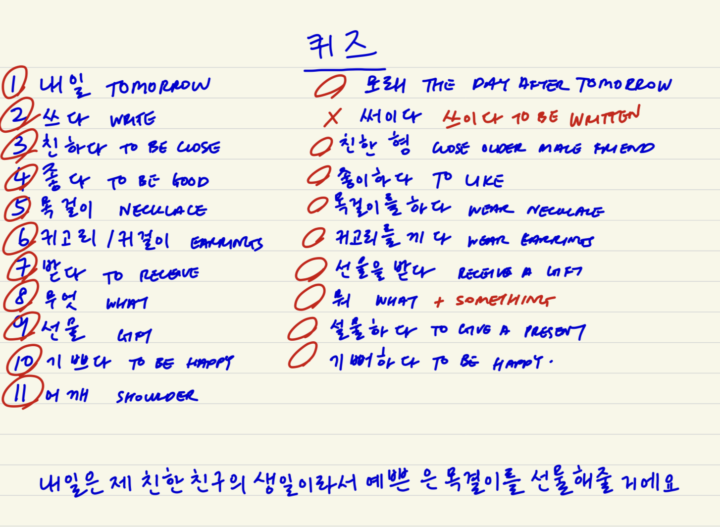 퀴즈
1 내일 TOMORROW 모래 THE DAY AFTER TOMORROW
2 쓰다 WRITE X 써이다 쓰이다 TO BE WRITTEN
3 친하다 TO BE CLOSE 친한 형 CLOSE OLDER MALE FRIEND
4 좋다 TO BE GOOD 좋이하다 TO LIKE
5 목걸이 NECKLACE 목걸이를 하다 WEAR NECKLACE
6 귀고리/귀걸이 EARRINGS 귀고리를 끼다 WEAR EARRINGS
7 받다 TO RECEIVE 선물을 받다 RECEIVE A GIFT
8 무엇 WHAT 뭐 WHAT + SOMETHING
9 선물 GIFT 설물하다 TO GIVE A PRESENT
10 기쁘다 TO BE HAPPY 기뻐하다 TO BE HAPPY.
11 어깨 SHOULDER
내일은 제 친한 친구의 생일이라서 예쁜 은 목결이를 선물해줄 거에요